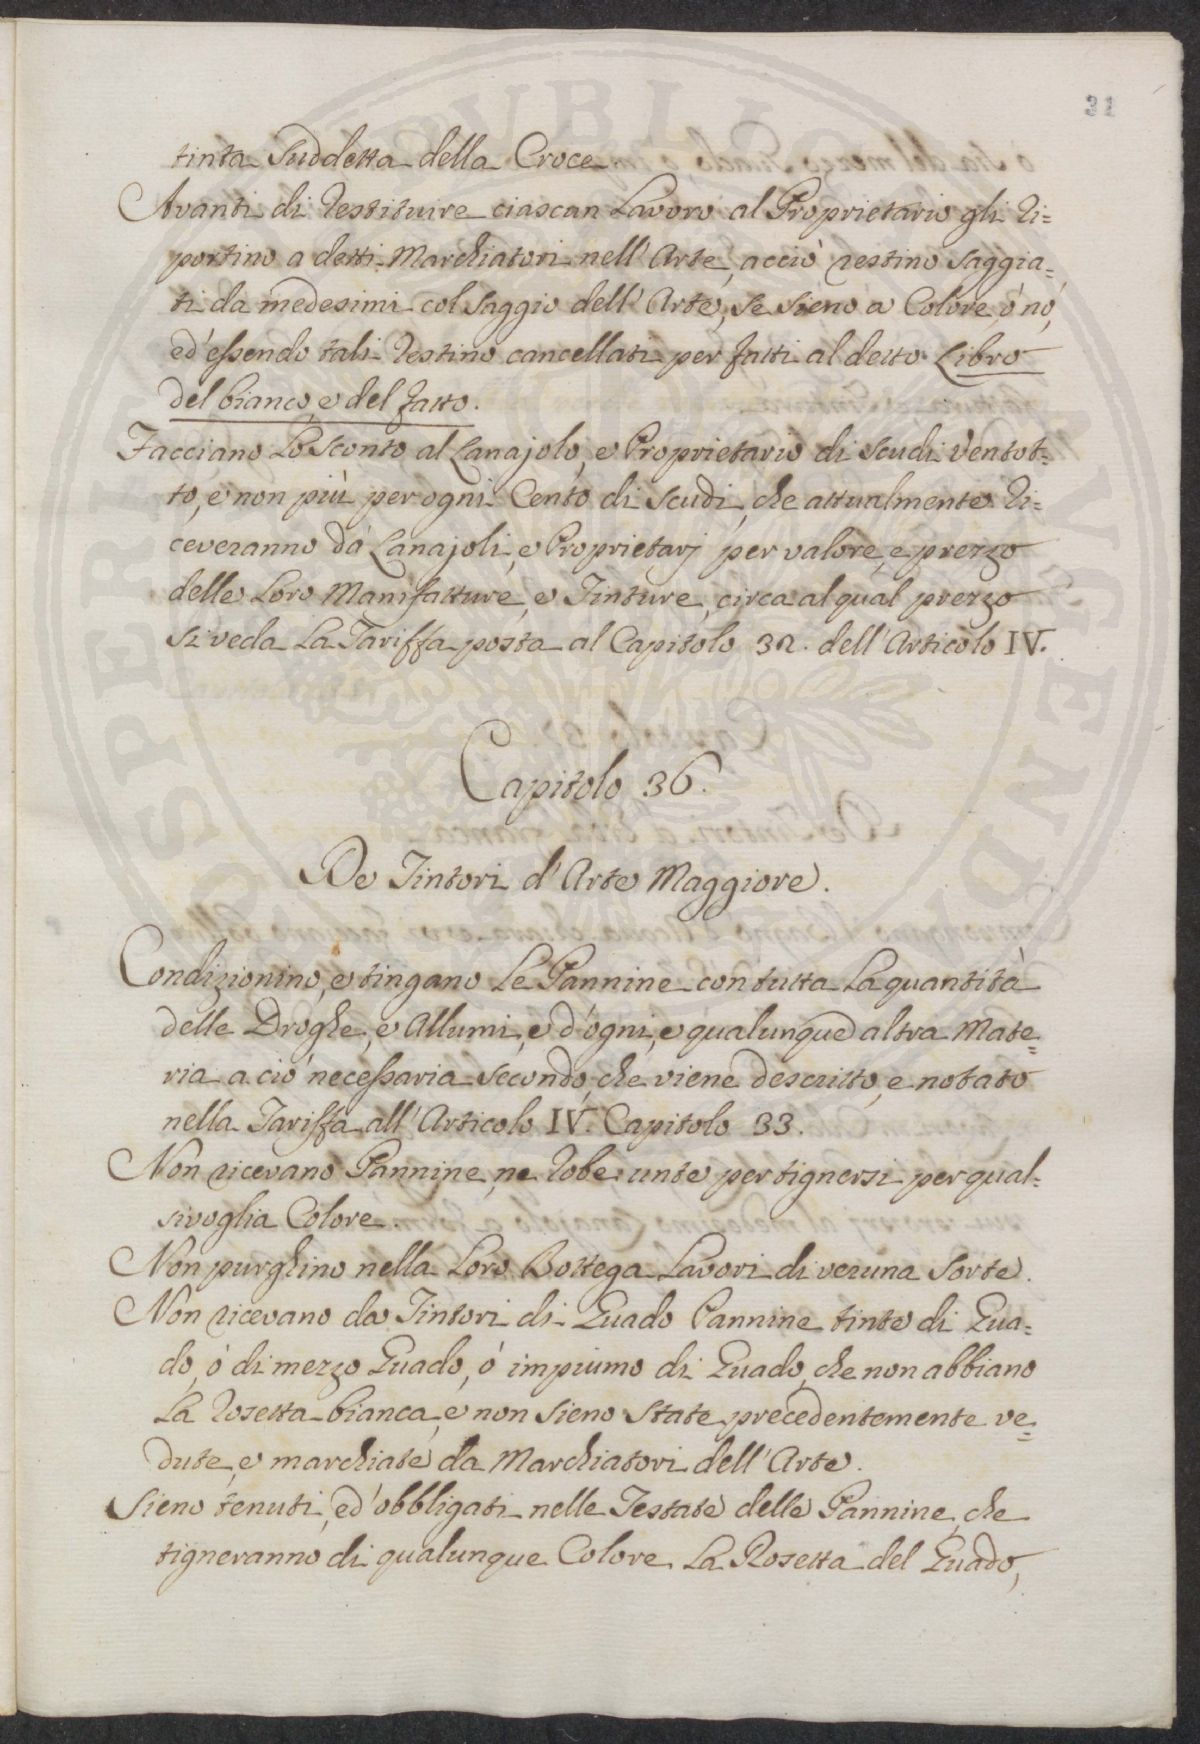 31
tinta Suddetta della Croce.
Avanti di Restituire ciascun Lavoro al Proprietario gli Ri=
portino a detti Marchiatori nell' Arte, acciò restino Saggia=
ti da medesimi col Saggio dell' Arte, se sieno a Colore, ò nò,
ed' essendo tali Restino cancellati per fatti al detto Libro
del bianco, e del fatto.
Facciano Lo Sconto al Lanajolo, e Proprietario di Scudi Ventot=
to, e non più per ogni Cento di Scudi, che attualmente Ri=
ceveranno dà Lanajoli, e Proprietarj per valore, e prezzo
delle Loro Manifatture, e Tinture, circa al qual prezzo
si veda La Tariffa posta al Capitolo 32. dell' Articolo IV.
Capitolo 36.
De Tintori d' Arte Maggiore.
Condizionino, e tingano Le Pannine con tutta La quantità
delle Droghe, e Allumi, e d'ogni, e qualunque altra Mate=
ria a ciò necessaria Secondo, che viene descritto, e notato
nella Tariffa all' Articolo IV. Capitolo 33.
Non ricevano Pannine, ne Robe unte per tignersi per qual=
sivoglia Colore.
Non purghino nella Loro Bottega Lavori di veruna Sorte.
Non ricevano da Tintori di Guado Pannine tinte di Gua=
do, ò di mezzo Guado, ò impiumo di Guado, che non abbiano
La Rosetta bianca, e non sieno State precedentemente ve=
dute, e marchiate da Marchiatori dell' Arte.
Sieno tenuti, ed' obbligati nelle Testate delle Pannine, che
tigneranno di qualunque Colore La Rosetta del Guado,